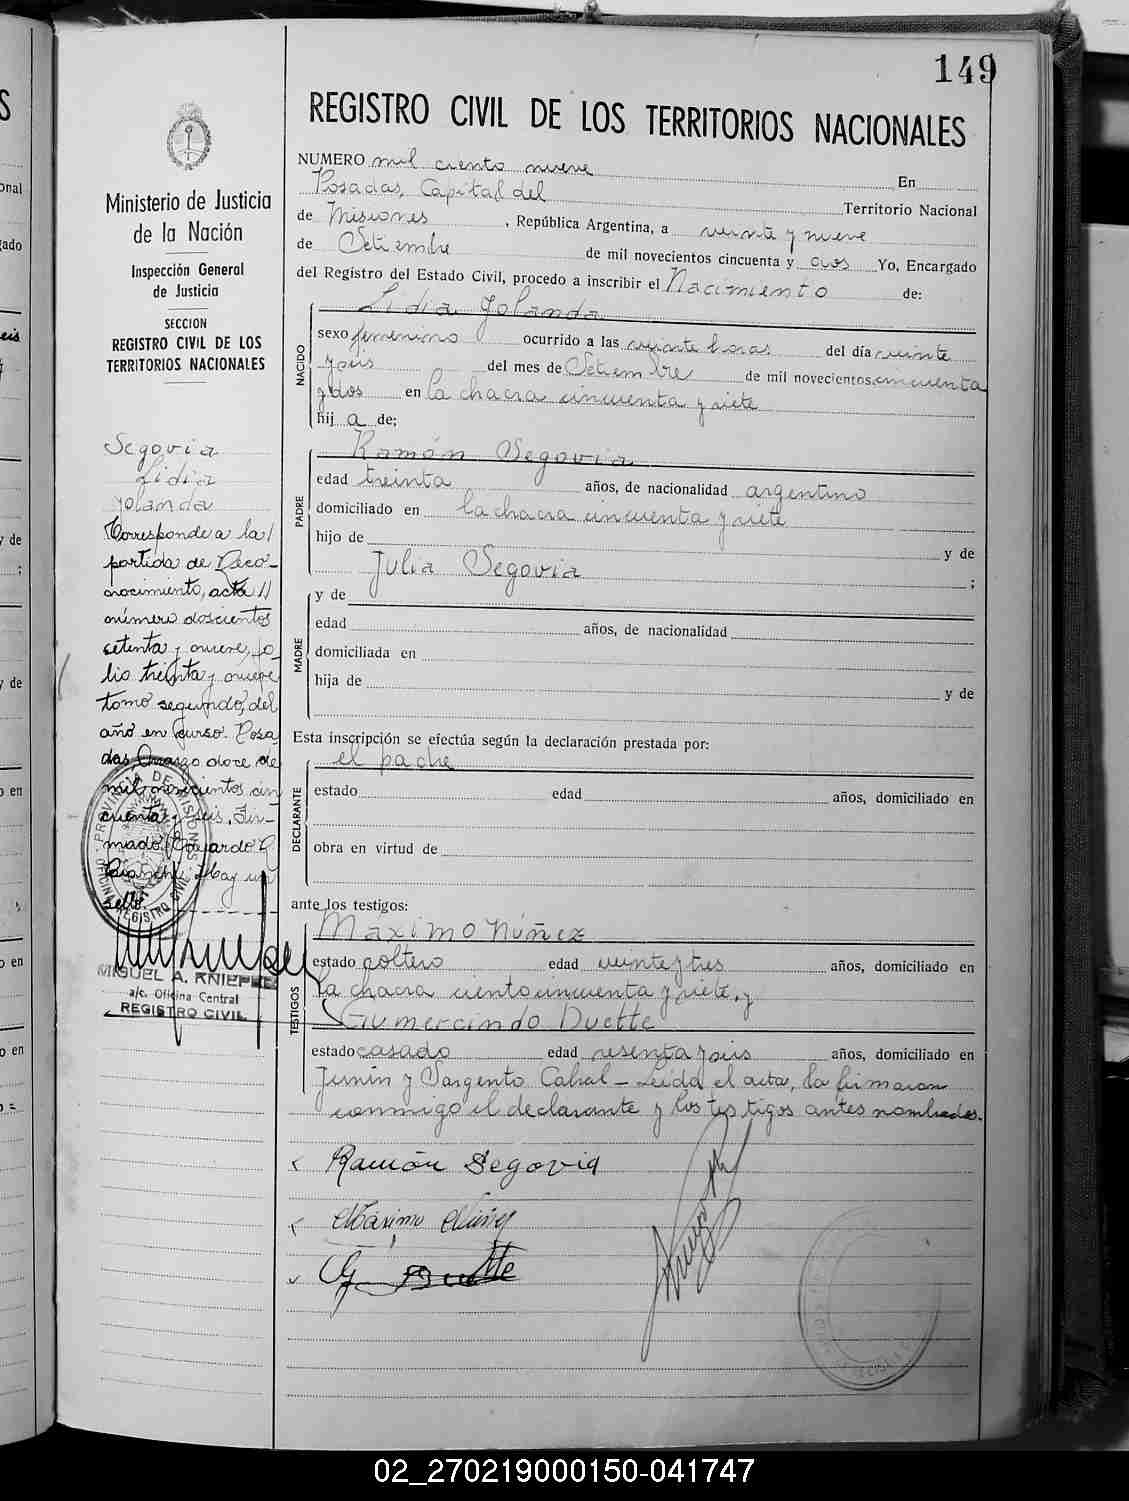 149
REGISTRO CIVIL DE LOS TERRITORIOS NACIONALES
Ministerio de Justicia
de la Nación
Inspección General
de Justicia
SECCION
REGISTRO CIVIL DE LOS
TERRITORIOS NACIONALES
Segovia
Lidia
Yolanda
Corresponde a la
partida de Reco-
nocimiento, acta
número doscientos
setenta y nueve, fo-
lio treinta y nueve
tomo segundo, del
año en curso. Posa
das, Marzo doce de
mil novecientos cin
cuenta y seis. Fir-
mado: Eduardo
Hay un
sello.
PROVINCIA DE MISIONES
REGISTRO CIVIL
MIGUEL A. KNIEPKE
a/c. Oficina Central
REGISTRO CIVIL
NUMERO mil ciento nueve En
Posadas, Capital del Territorio Nacional
de Misiones, República Argentina, a veinte y nueve
de Setiembre de mil novecientos cincuenta y dos Yo, Encargado
del Registro del Estado Civil, procedo a inscribir el Nacimiento de:
NACIDO
Lidia Yolanda
sexo femenino ocurrido a las veinte horas del día veinte
y seis del mes de Setiembre de mil novecientos cincuenta
y dos en la chacra cincuenta y siete
hij a de;
PADRE
Ramón Segovia
edad treinta años, de nacionalidad argentino
domiciliado en la chacra cincuenta y siete
hijo de y de
Julia Segovia ;
MADRE
y de
edad años, de nacionalidad
domiciliada en
hija de y de
Esta inscripción se efectúa según la declaración prestada por:
DECLARANTE
el padre
estado edad años, domiciliado en
obra en virtud de
ante los testigos:
TESTIGOS
Maximo Núñez
estado soltero edad veinte y tres años, domiciliado en
la chacra ciento cincuenta y siete, y
Gumercindo Duette
estado casado edad sesenta y seis años, domiciliado en
Junín y Sargento Cabral – Leída el acta, la firmaron
conmigo el declarante y los testigos antes nombrados.
Ramón Segovia
Máximo Núñez
G Duette
02_270219000150-041747